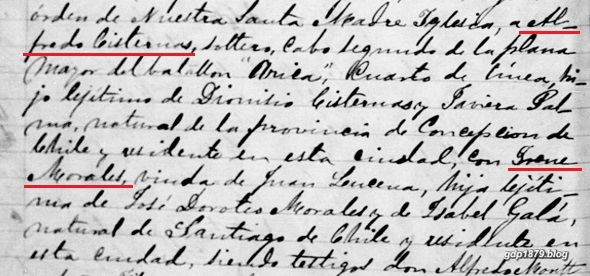 órden de Nuestra Santa Madre Iglesia, a Al-
fredo Cisternas, soltero, Cabo segundo de la plana
mayor del batallon "Arica", Cuarto de línea, hi-
jo lejítimo de Dionisio Cisternas y Javiera Pal-
ma, natural de la provincia de Concepcion de
Chile y residente en esta ciudad, con Irene
Morales, viuda de Juan Lucena, hija lejíti-
ma de José Doroteo Morales y de Isabel Galá,
natural de Santiago de Chile y residente en
esta ciudad, siendo testigos don Alfredo Montt
gdp1879.blog